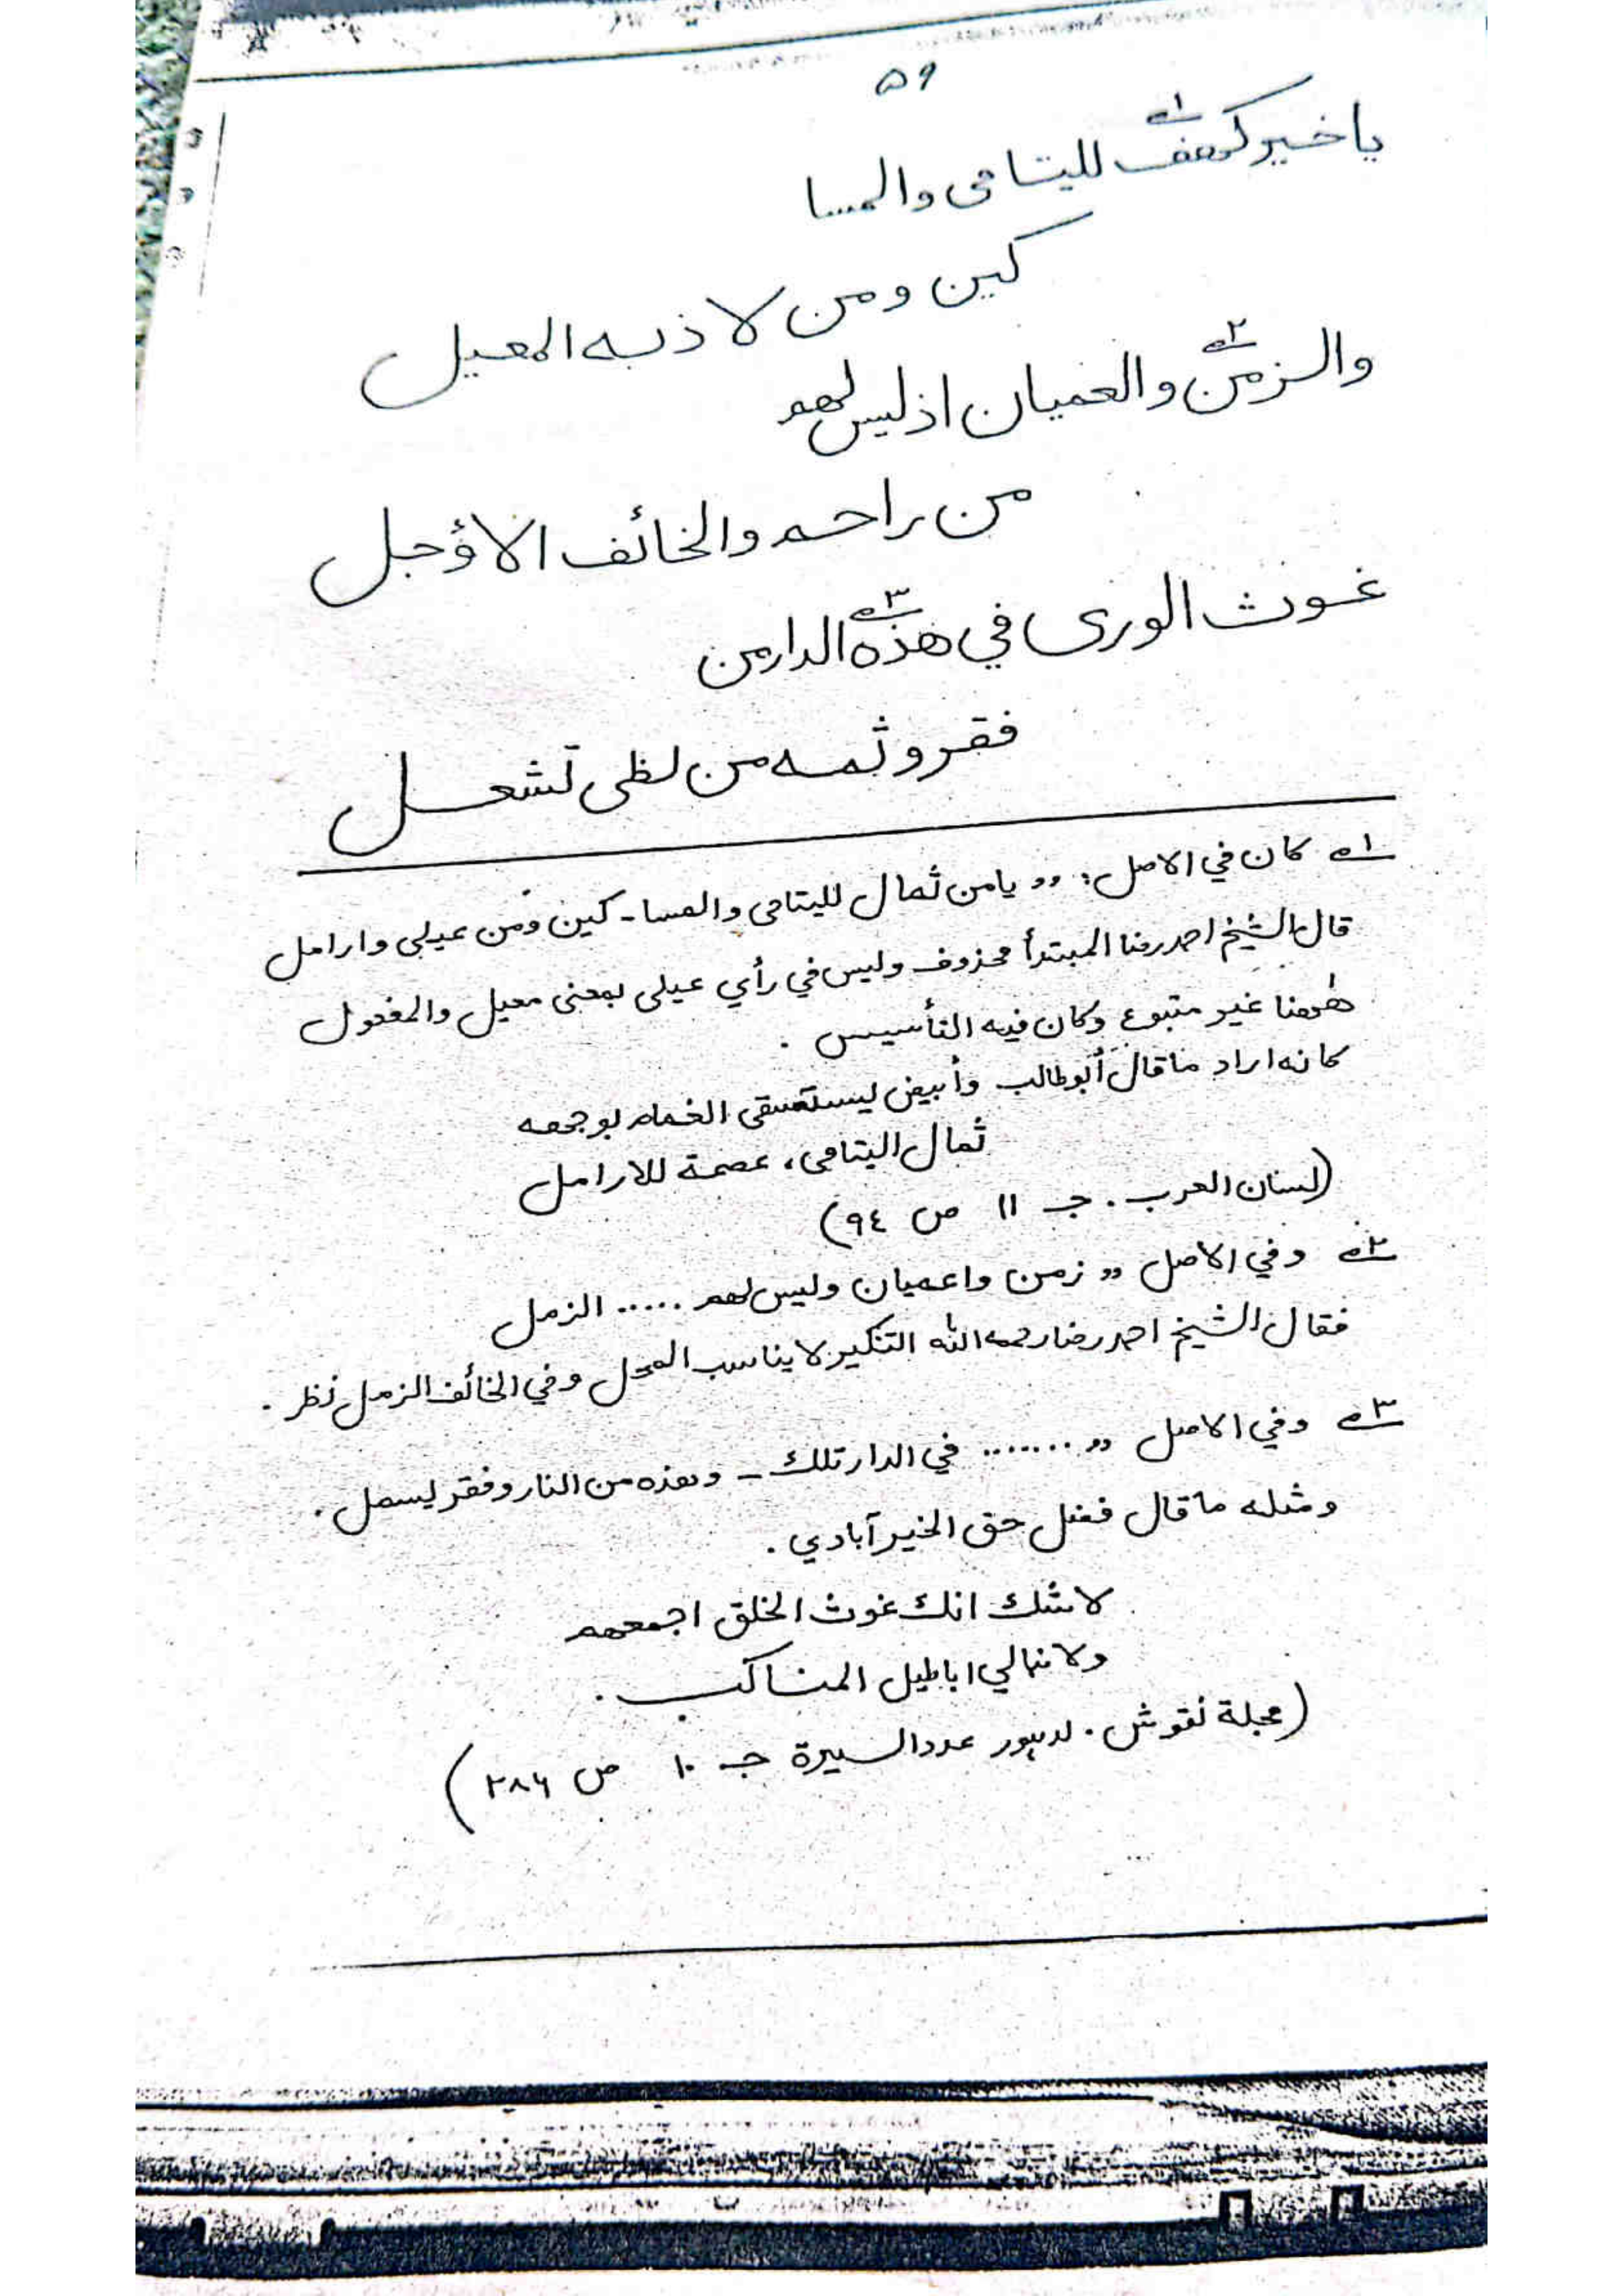 ۵۹
یا خیر کهف۱ للیتامی والمسا
کین ومن لاذ به المعیل
والزمن۲ والعمیان اذ لیس لهم
من راحم والخائف الاؤجل
غوث الوری في هذه۳ الدار من
فقر وثمه من لظی تشعل
۱ه كان في الاصل: ,, یا من ثمال للیتامی والمسا - کین ومن عیلی وارامل
قال الشیخ احمد رضا المبتدأ محذوف ولیس في رأي عیلی بمعنی معیل والمفعول
ههنا غیر متبوع وکان فیه التأسیس .
کانه اراد ما قال أبوطالب وأبیض یستسقی الغمام بوجهه
ثمال الیتامی، عصمة للارامل
(لسان العرب . جـ ۱۱ ص ۹٤)
۲ه وفي الاصل ,, زمن واعمیان ولیس لهم ..... الزمل
فقال الشیخ احمد رضا رحمه الله التنکیر لا یناسب المحل وفي الخائف الزمل نظر .
۳ه وفي الاصل ,, ....... في الدار تلك - وهذه من النار وفقر یسمل .
ومثله ما قال فضل حق الخیرآبادي .
لا شك انك غوث الخلق اجمعهم
ولا نبالي اباطیل المناکب .
(مجلة نقوش . لاهور عدد السیرة جـ ۱۰ ص ۲۸۶)